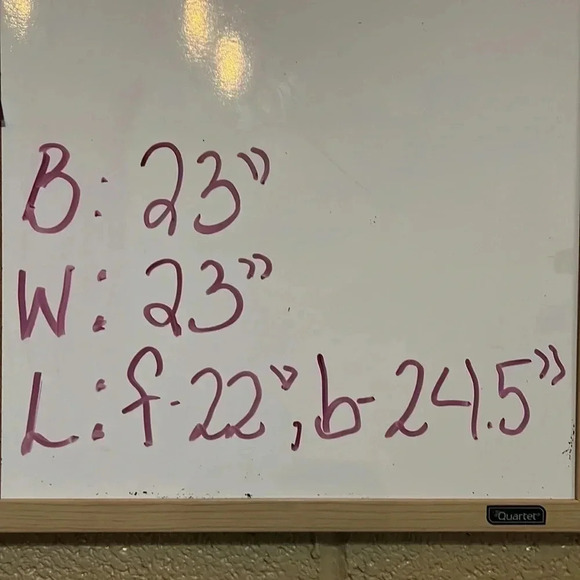 B: 23"
W: 23"
L: f-22", b-24.5"
Quartet